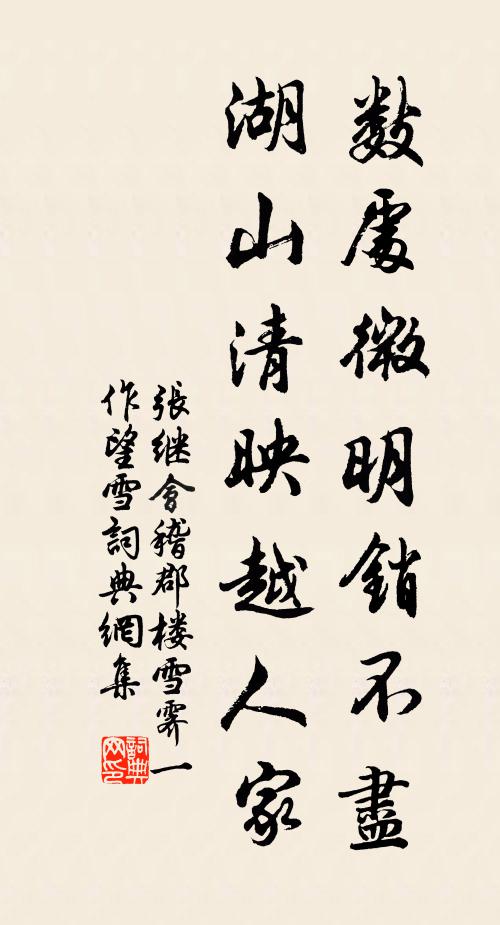 數處微明銷不盡
湖山清映越人家
張继會稽郡楼雪霽一
作望雪詞典網集
詞典
网印